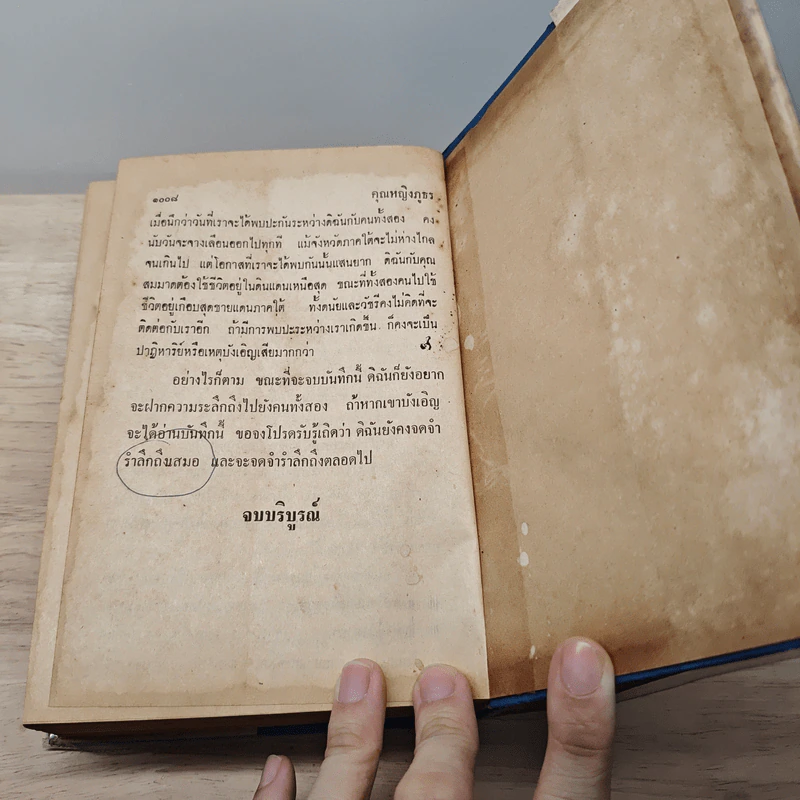 ๑๐๐๘ คุณหญิงภูธร
เมื่อนึกว่าวันที่เราจะได้พบปะกันระหว่างดิฉันกับคนทั้งสอง คง
นับวันจะจางเลือนออกไปทุกที แม้จังหวัดภาคใต้จะไม่ห่างไกล
จนเกินไป แต่โอกาสที่เราจะได้พบกันนั้นแสนยาก ดิฉันกับคุณ
สมมาดต้องใช้ชีวิตอยู่ในดินแดนเหนือสุด ขณะที่ทั้งสองคนไปใช้
ชีวิตอยู่เกือบสุดชายแดนภาคใต้ ทั้งดนัยและวัชรีคงไม่คิดที่จะ
ติดต่อกับเราอีก ถ้ามีการพบปะระหว่างเราเกิดขึ้น ก็คงจะเป็น
ปาฏิหาริย์หรือเหตุบังเอิญเสียมากกว่า
อย่างไรก็ตาม ขณะที่จะจบบันทึกนี้ ดิฉันก็ยังอยาก
จะฝากความระลึกถึงไปยังคนทั้งสอง ถ้าหากเขาบังเอิญ
จะได้อ่านบันทึกนี้ ขอจงโปรดรับรู้เถิดว่า ดิฉันยังคงจดจำ
รำลึกถึงเสมอ และจะจดจำรำลึกถึงตลอดไป
จบบริบูรณ์